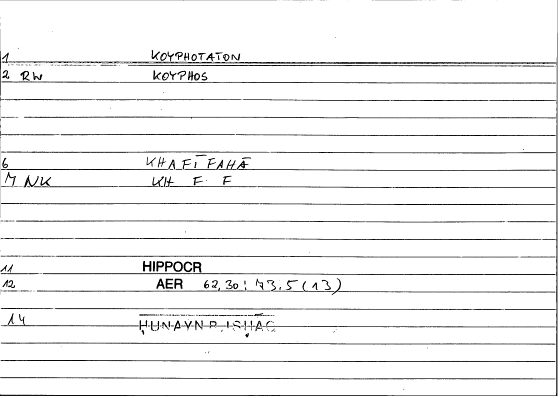 1 KOYPHOTATON
2 RW KOYPHOS
6 KHAFĪFAHĀ
7 NK KH F F
11 HIPPOCR
12 AER 62,30 : 73,5 (13)
14 ḤUNAYN B. ISḤĀQ